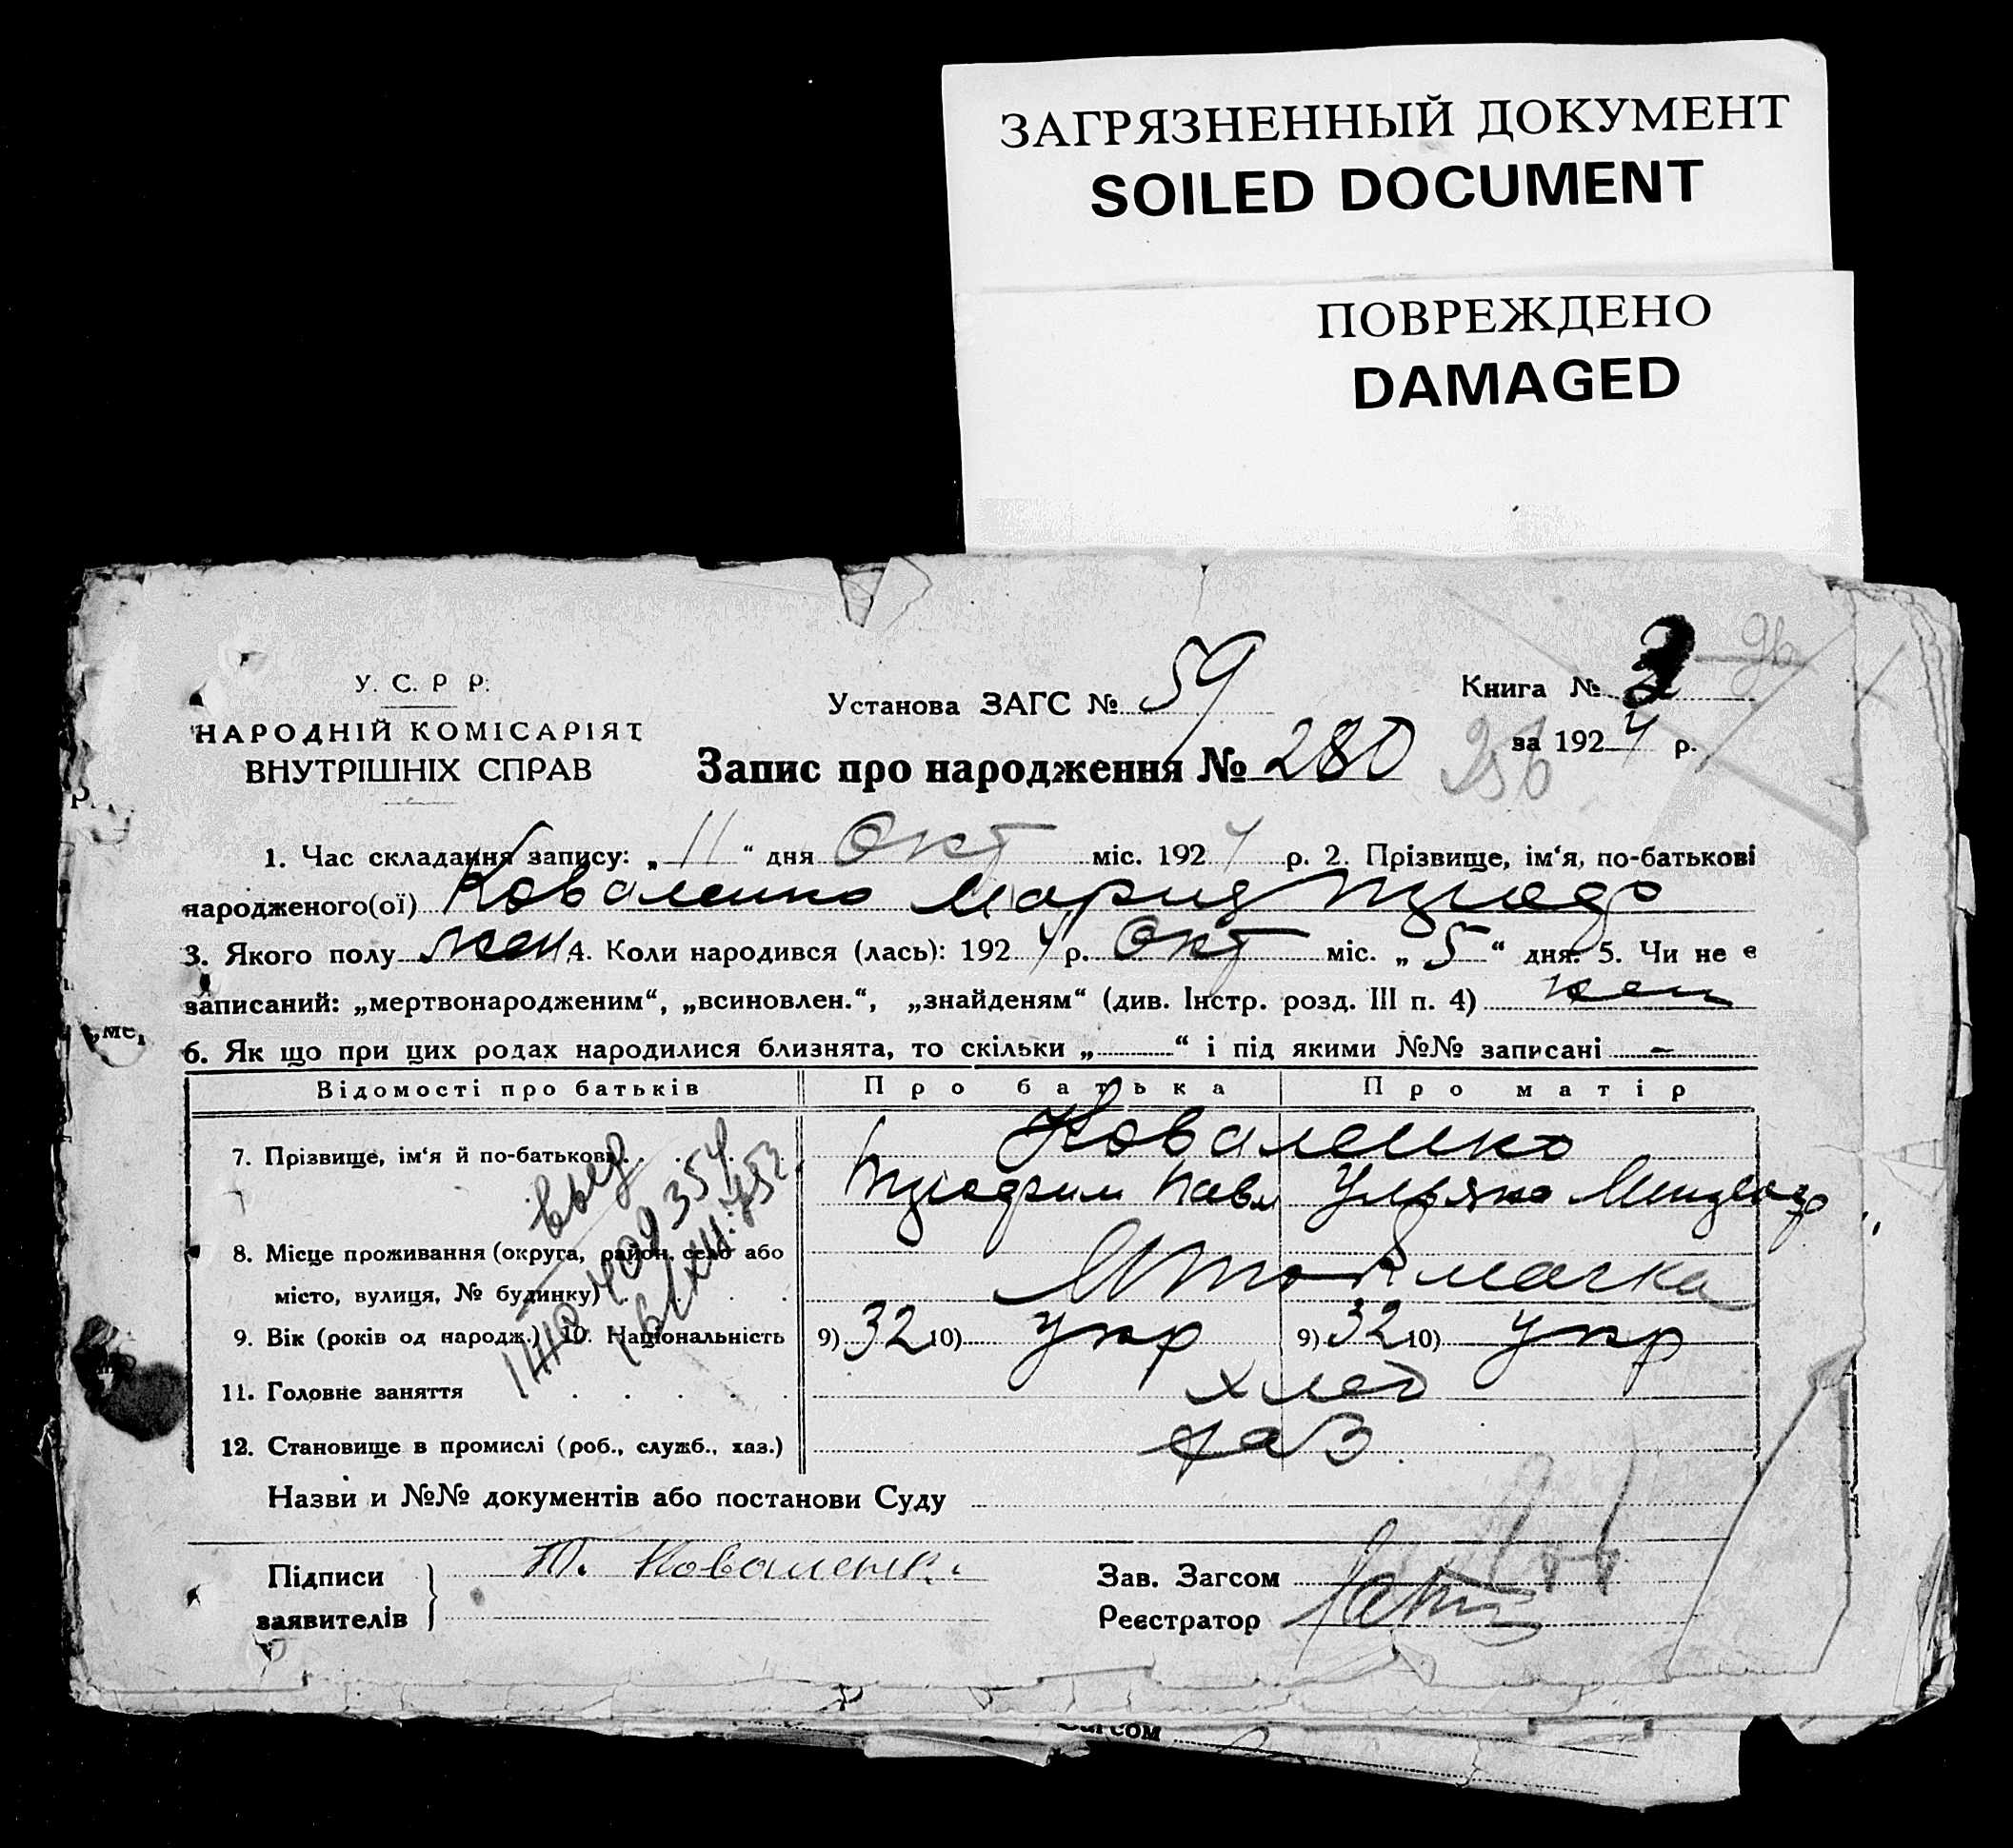 ЗАГРЯЗНЕННЫЙ ДОКУМЕНТ
SOILED DOCUMENT
ПОВРЕЖДЕНО
DAMAGED
У. С. Р Р.
НАРОДНІЙ КОМІСАРІЯТ
ВНУТРІШНІХ СПРАВ
Установа ЗАГС № 59
Книга №
за 1924 р.
Запис про народження № 280
1. Час складання запису: „ 11 “ дня Окт міс. 1924 р. 2. Прізвище, ім‘я, по-батькові
народженого(ої) Коваленко Мария
3. Якого полу жен 4. Коли народився (лась): 1924 р. Окт міс. „ 5 “ дня. 5. Чи не є
записаний: „мертвонародженим“, „всиновлен.“, „знайденям“ (див. Інстр. розд. III п. 4)
6. Як що при цих родах народилися близнята, то скільки „ “ і під якими №№ записані -
Відомості про батьків Про батька Про матір
7. Прізвище, ім‘я й по-батькові Коваленко
Павл Ульяна
8. Місце проживання (округа, район, село або
місто, вулиця, № будинку)
9. Вік (років од народж.) 10. Національність 9) 32 10) укр 9) 32 10) укр
11. Головне заняття хлеб
12. Становище в промислі (роб., служб., хаз.)
Назви и №№ документів або постанови Суду
Підписи Т. Коваленк.
заявителів
Зав. Загсом
Реєстратор
Загсом